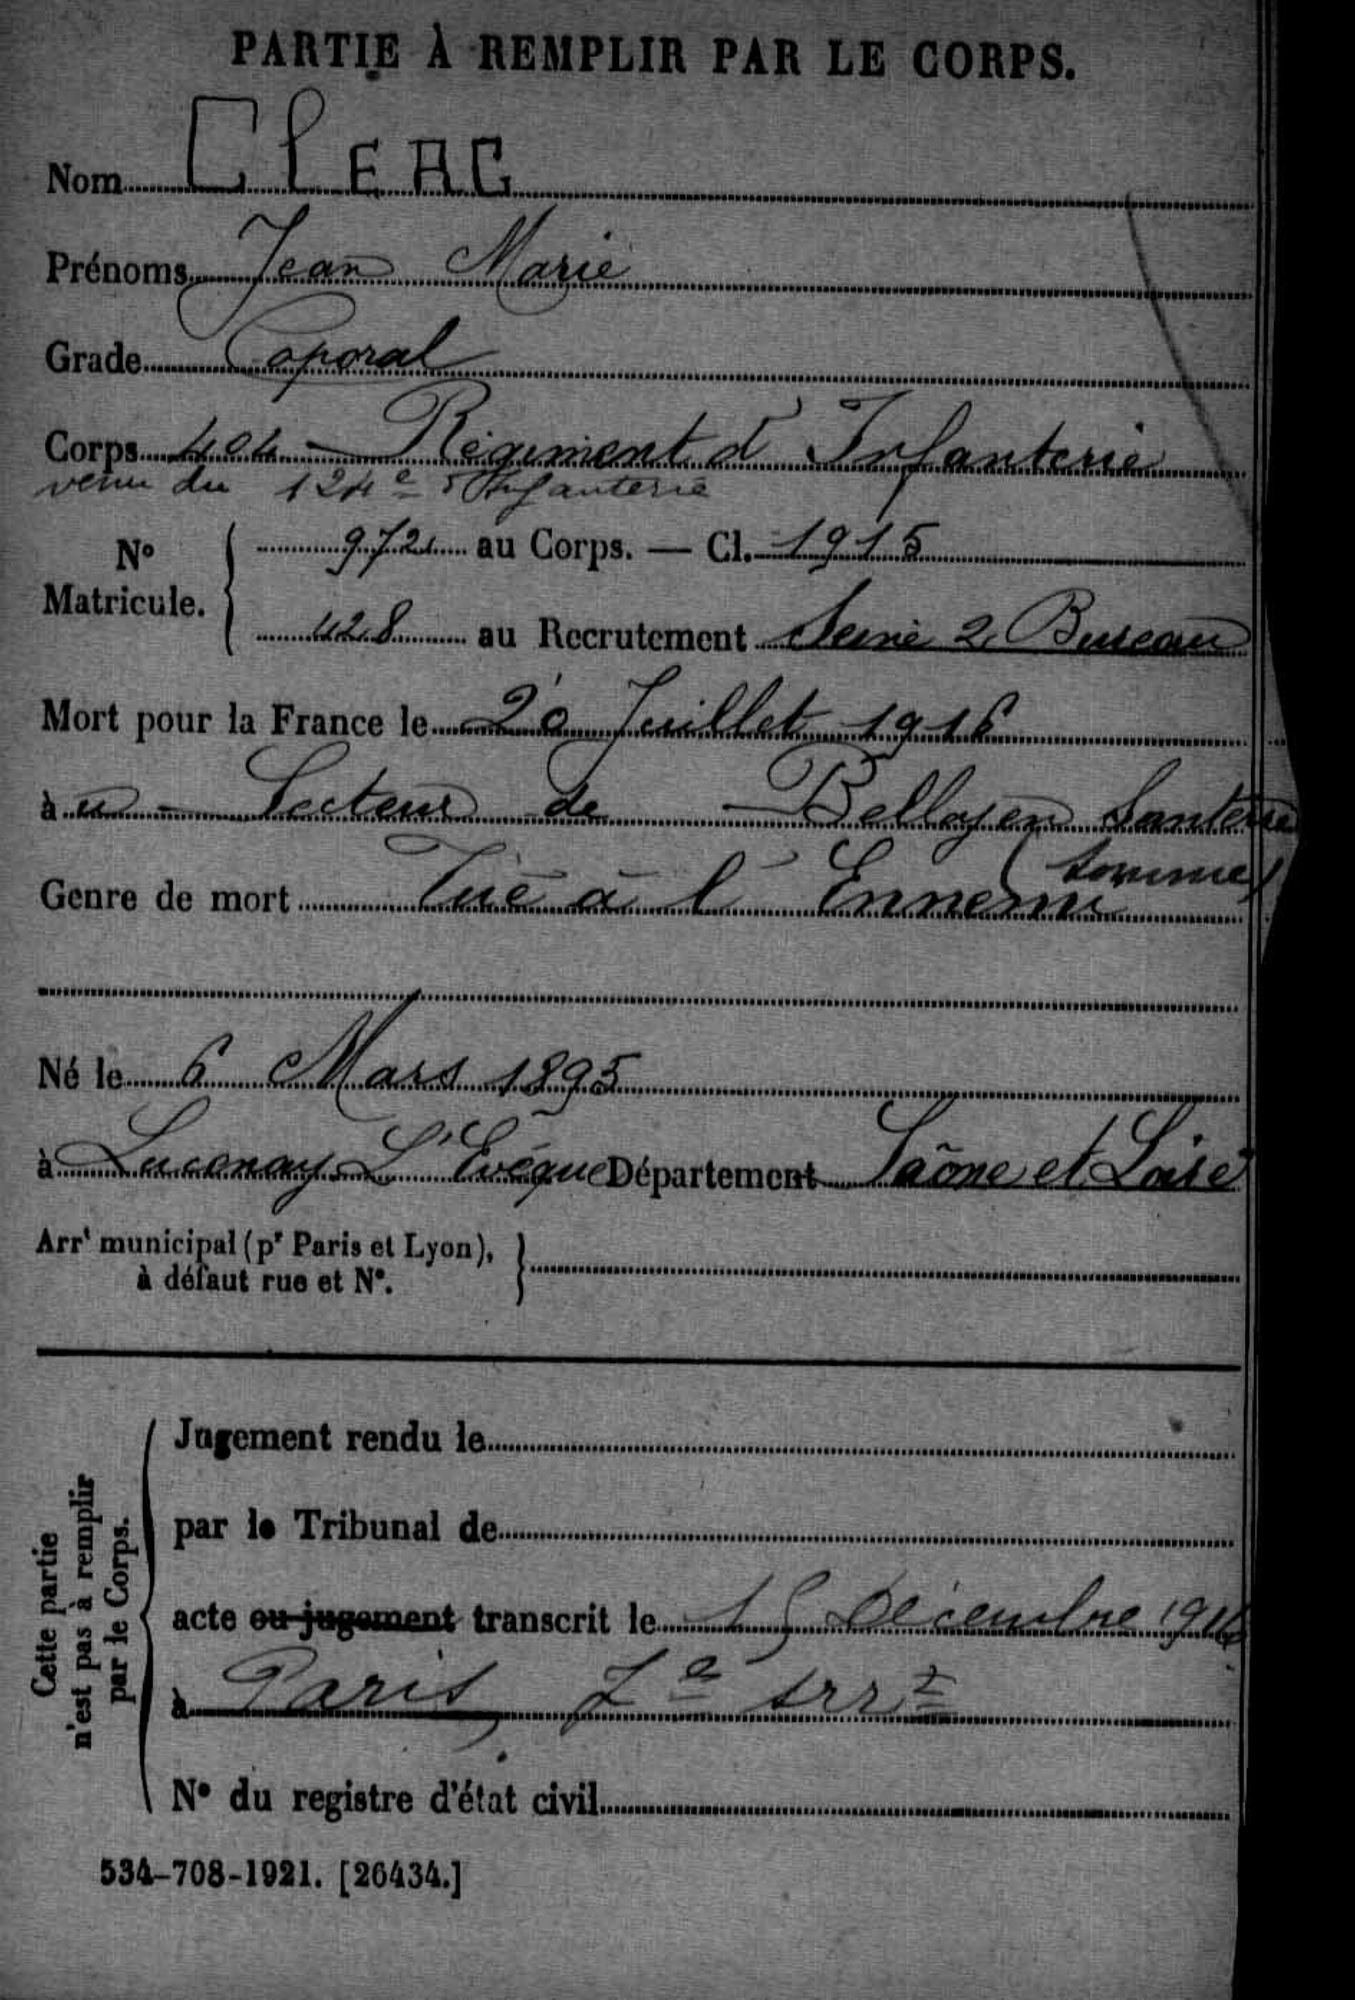 PARTIE À REMPLIR PAR LE CORPS.
Nom ClEAG
Prénoms Jean Marie
Grade Caporal
Corps 404 Régiment d'Infanterie
venu du 124e d'Infanterie
No Matricule. 972 au Corps. — Cl. 1915
428 au Recrutement Seine 2 Bureau
Mort pour la France le 20 Juillet 1916
à u Secteur de Belloyen Santerre
(Somme)
Genre de mort Tué à l'Ennemi
Né le 6 Mars 1895
à Lucenay L'Evêque Département Saône et Loire
Arrt municipal (pr Paris et Lyon),
à défaut rue et No.
Cette partie
n'est pas à remplir
par le Corps.
Jugement rendu le
par le Tribunal de
acte ou jugement transcrit le 15 Décembre 1916
à Paris, 7e arrt
No du registre d'état civil
534-708-1921. [26434.]